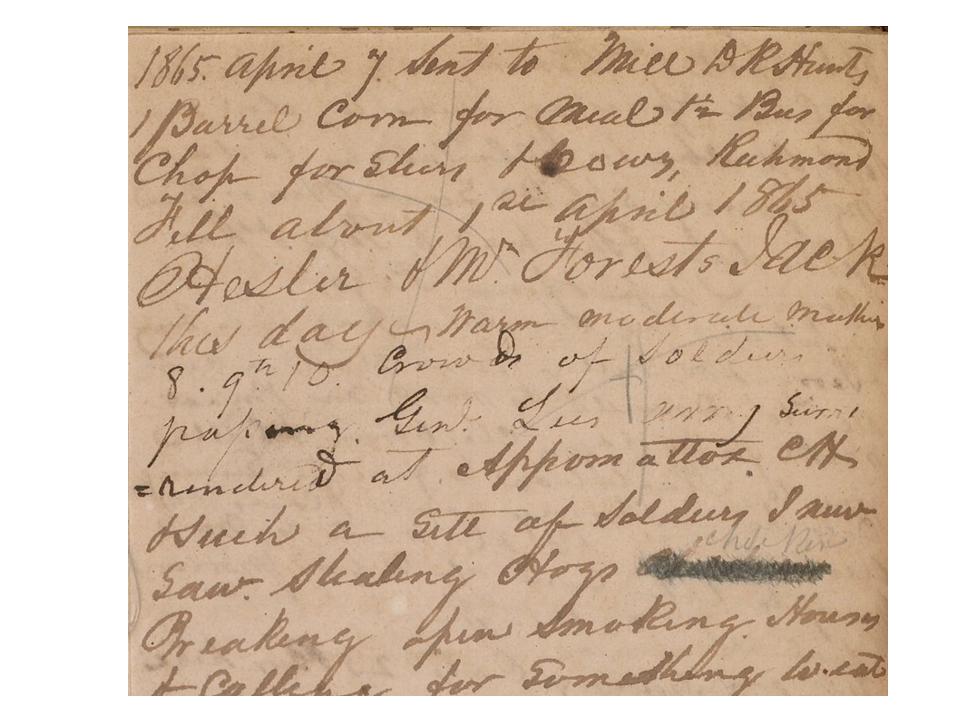 1865. April 7 Sent to Mill D R Hunts
1 Barrel Corn for Meal 1½ Bus for
Chop for Stears & Cows, Richmond
Fell about 1st April 1865
Hesler & Mr Forests Jack
this day Warm moderate
8. 9th 10. Crowds of Soldiers
passing. Genl. Lees army Surri
=rendered at Appomattox CH
& Such a Sett of Soldiers I nevr
Saw. Stealing Hogs chicken
Breaking open Smoking Houses
& Calling for Something to eat